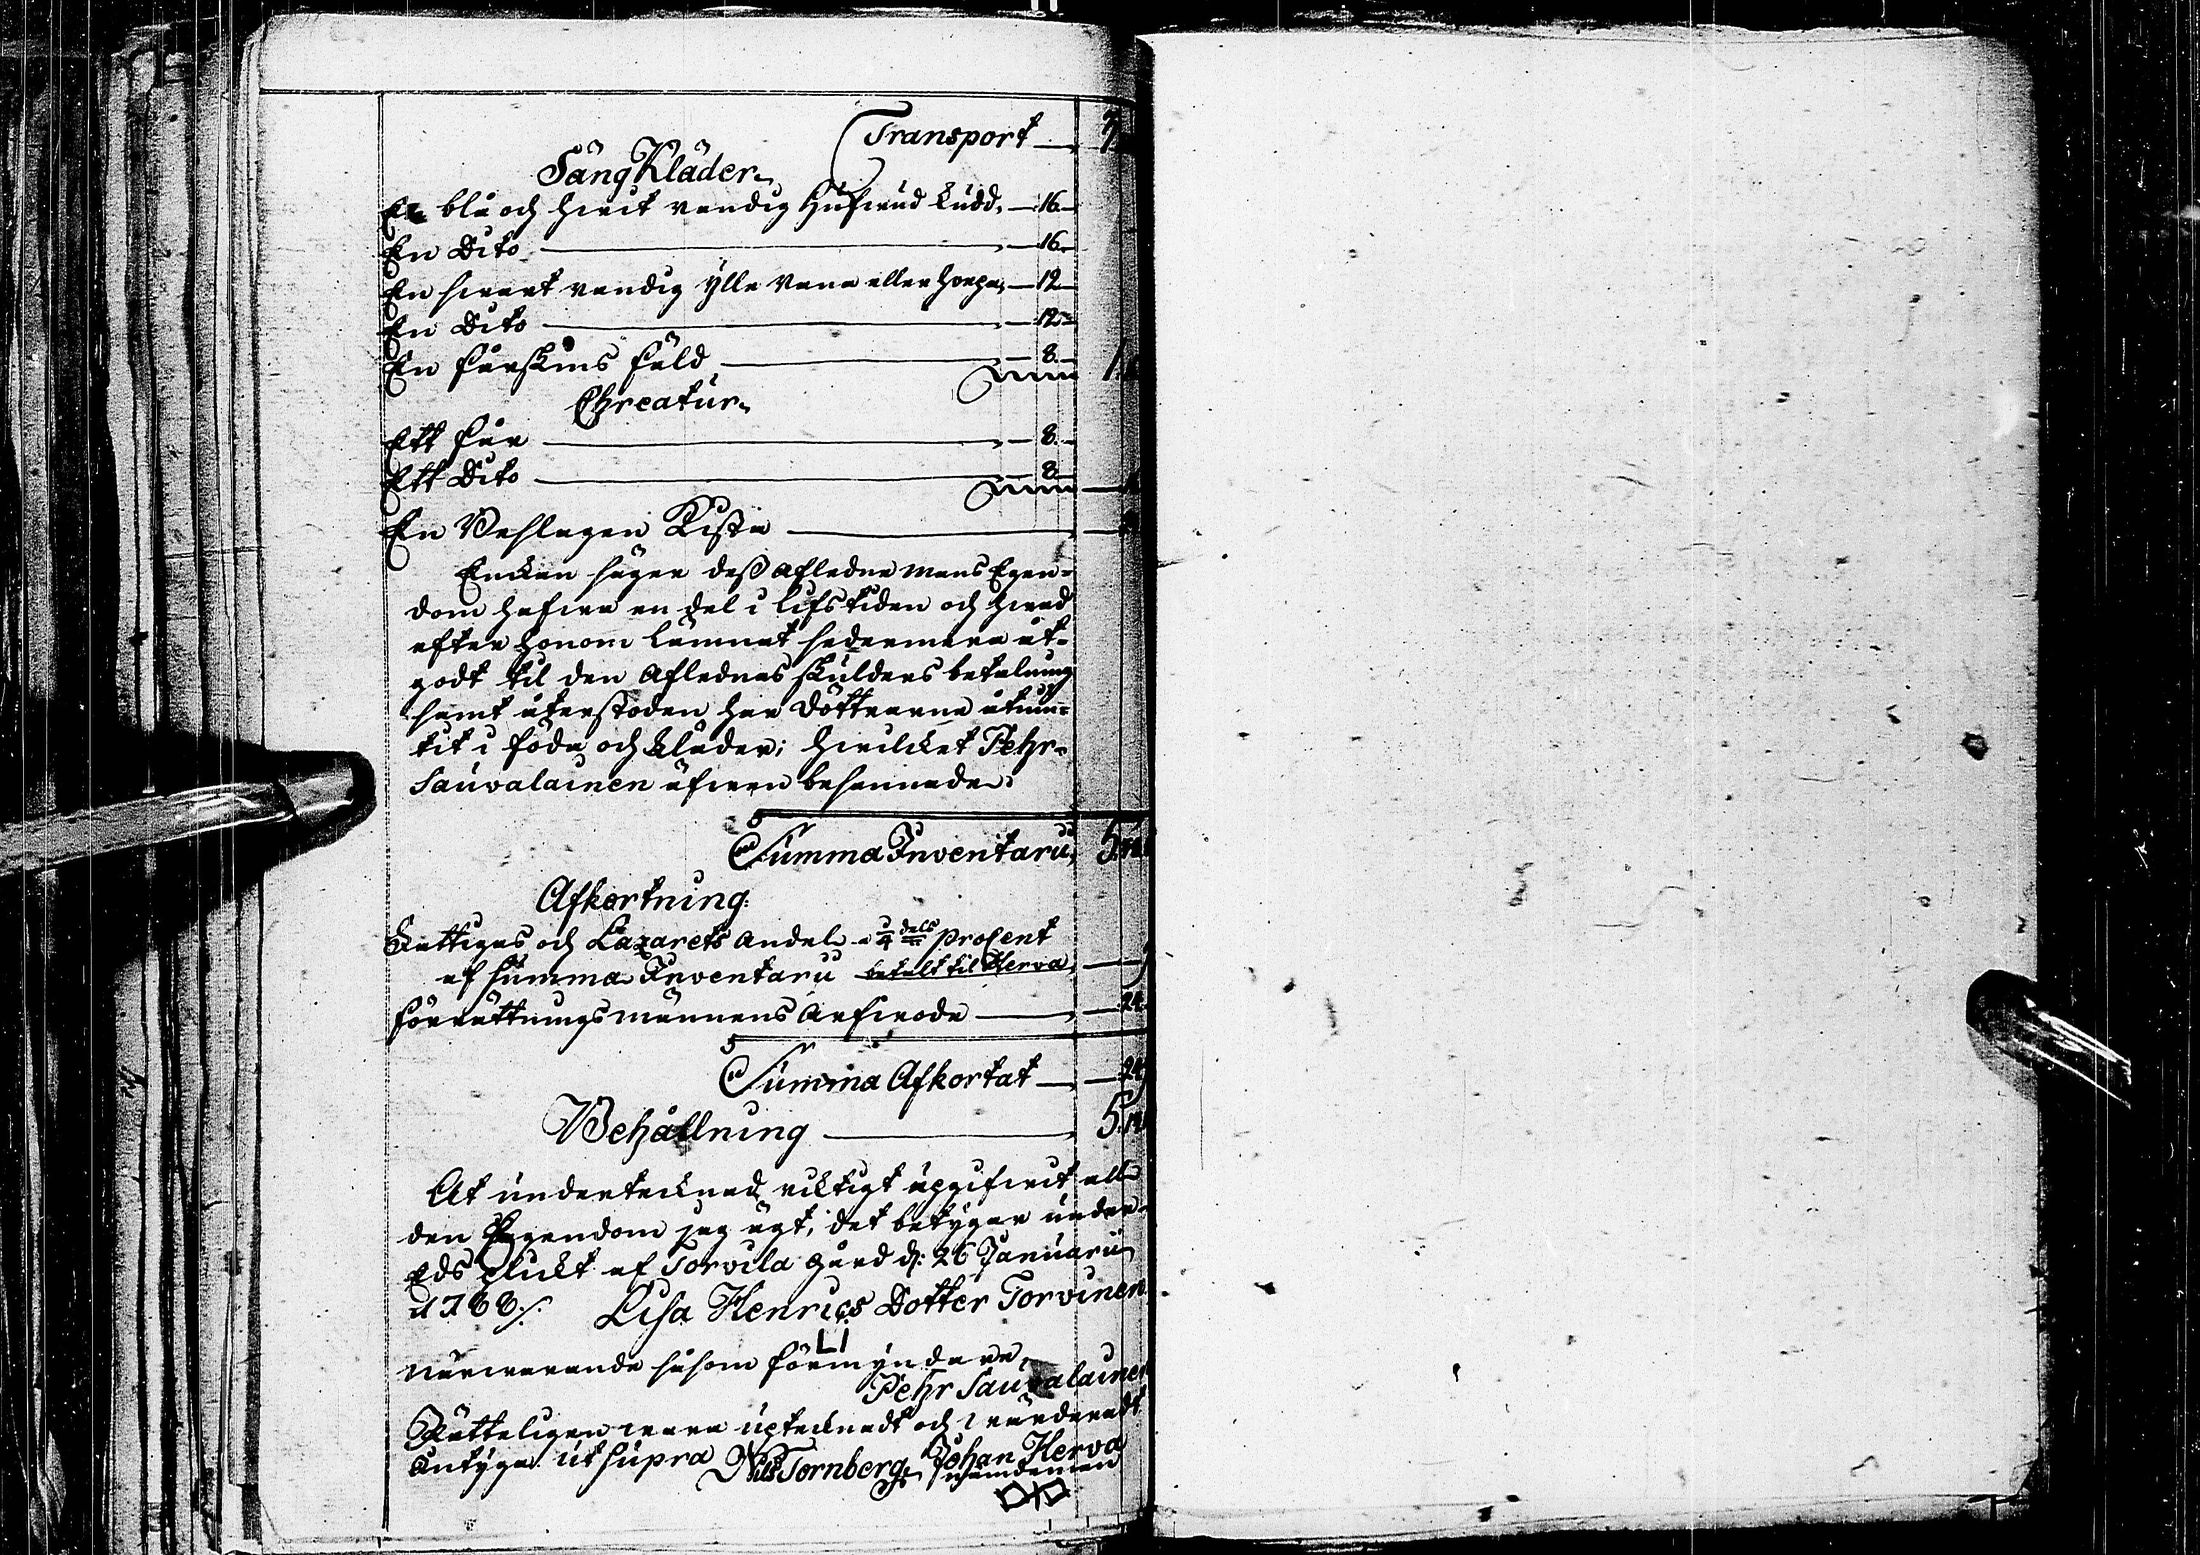 Transport
Säng Kläder
En blå och hwit randig Hufwud Kudd, 16.
En Dito 16.
En swart randig ylle Rana eller 12
En Dito 12
En fårskins fäld 8.
Chreatur
Ett får 8.
Ett Dito 8
En Beslagen Kista
Enckan säger dess Afledne mans Egen-
dom hafwa en del i lifstiden och hwad
efter honom lämnat sedermera åt-
gådt til den Aflednes skulders betalning
samt återstoden har Döttrarna åtnu-
tit i föda och kläder; hwilcket Pehr
Sauvalainen äfwen besannade.
Summa Inventarii, 5.
Afkortning
Fattigas och Lazarets Andel a 1/4 dels Procent
af summa Inventarii betalt til Herva
Förrättningsmännens Arfwode 24.
Summa Afkortat 24
Behållning 5.
At undertecknad richtigt upgifwit all
den Egendom jag ägt, det betygar under
Eds plickt af Torvila gård d: 26 Januarii
1788 ./. Lisa Henrics Dotter Torvinen
LI
närwarande såsom förmyndare,
Pehr Sauvalainen
Rätteligen wara uptecknadt och wärderadt
Antyga ut supra Nils Tornberg, Johan Herva
nämdeman